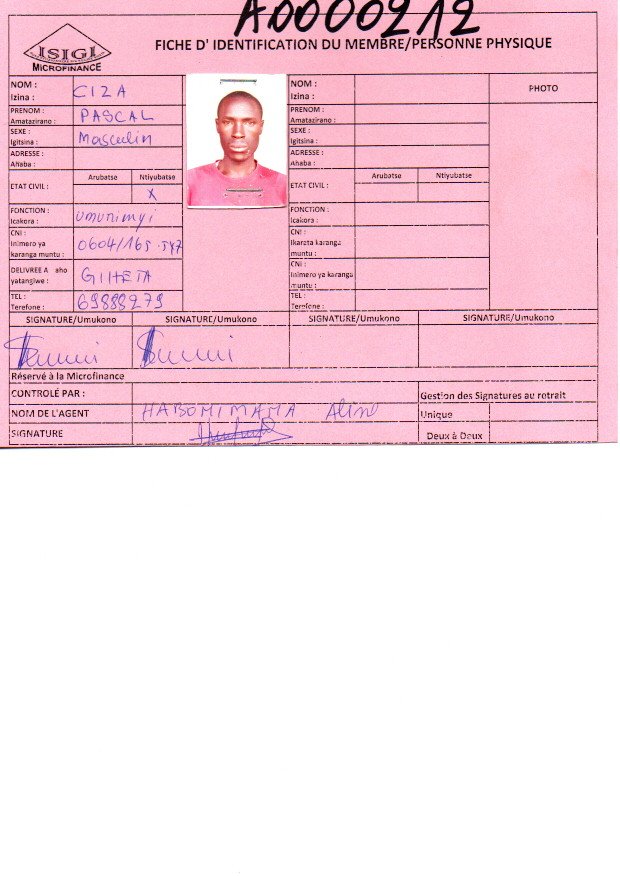 A0000212
ISIGI
MICROFINANCE
FICHE D' IDENTIFICATION DU MEMBRE/PERSONNE PHYSIQUE
NOM : CIZA
Izina :
PRENOM : PASCAL
Amatazirano :
SEXE : Masculin
Igitsina :
ADRESSE :
Aħaba :
Arubatse Ntiyubatse
ETAT CIVIL : X
FONCTION : umunimyi
Icakora :
CNI : 0604/165.547
Inimero ya
karanga muntu :
DELIVREE A aho GIHETA
yatangiwe :
TEL : 69888279
Terefone :
NOM :
Izina :
PHOTO
PRENOM :
Amatazirano :
SEXE :
Igitsina :
ADRESSE :
Aħaba :
Arubatse Ntiyubatse
ETAT CIVIL :
FONCTION :
Icakora :
CNI :
Ikareta karanga
muntu :
CNI :
Inimero ya karanga
muntu :
TEL :
Terefone :
SIGNATURE/Umukono SIGNATURE/Umukono SIGNATURE/Umukono SIGNATURE/Umukono
Réservé à la Microfinance
CONTROLÉ PAR : Gestion des Signatures au retrait
NOM DE L'AGENT HABONIMANA Aline Unique
SIGNATURE Deux à Deux